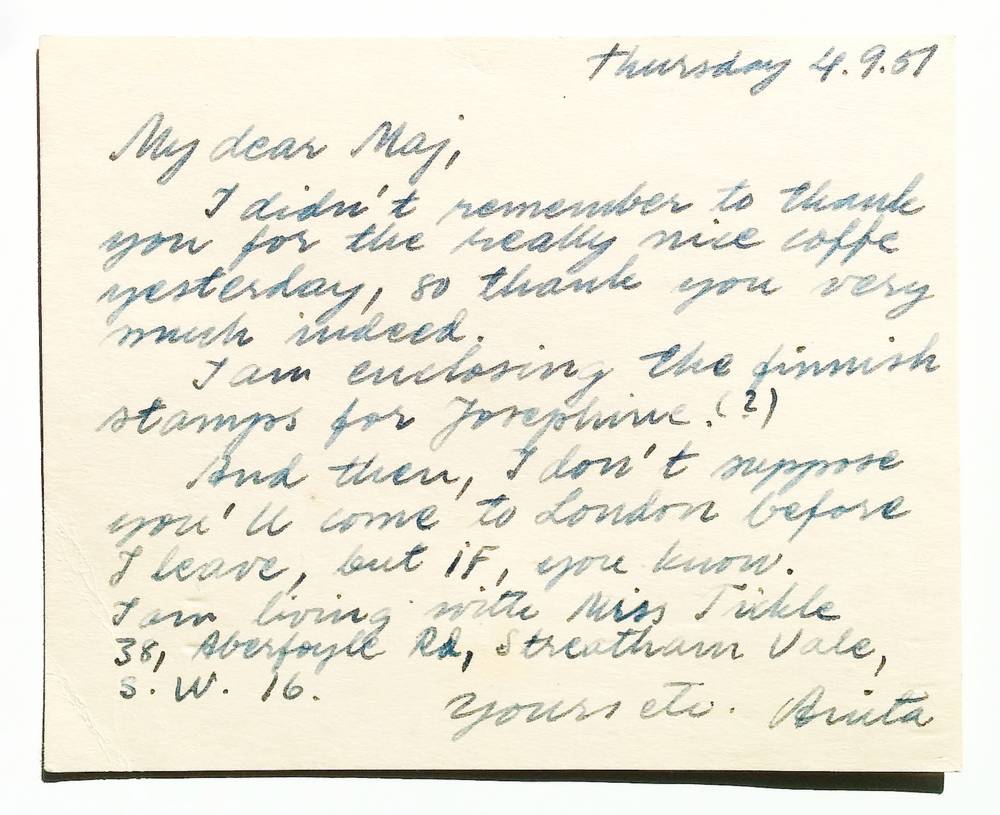 Thursday 4.9.51
My dear Maj,
I didn't remember to thank
you for the really nice coffe
yesterday, so thank you very
much indeed.
I am enclosing the finnish
stamps for Josephine. (?)
And then, I don't suppose
you'll come to London before
I leave, but IF, you know.
I am living with Miss Tickle
38, Aberfoyle Rd, Streatham Vale,
S. W. 16.
Yours etc. Anita